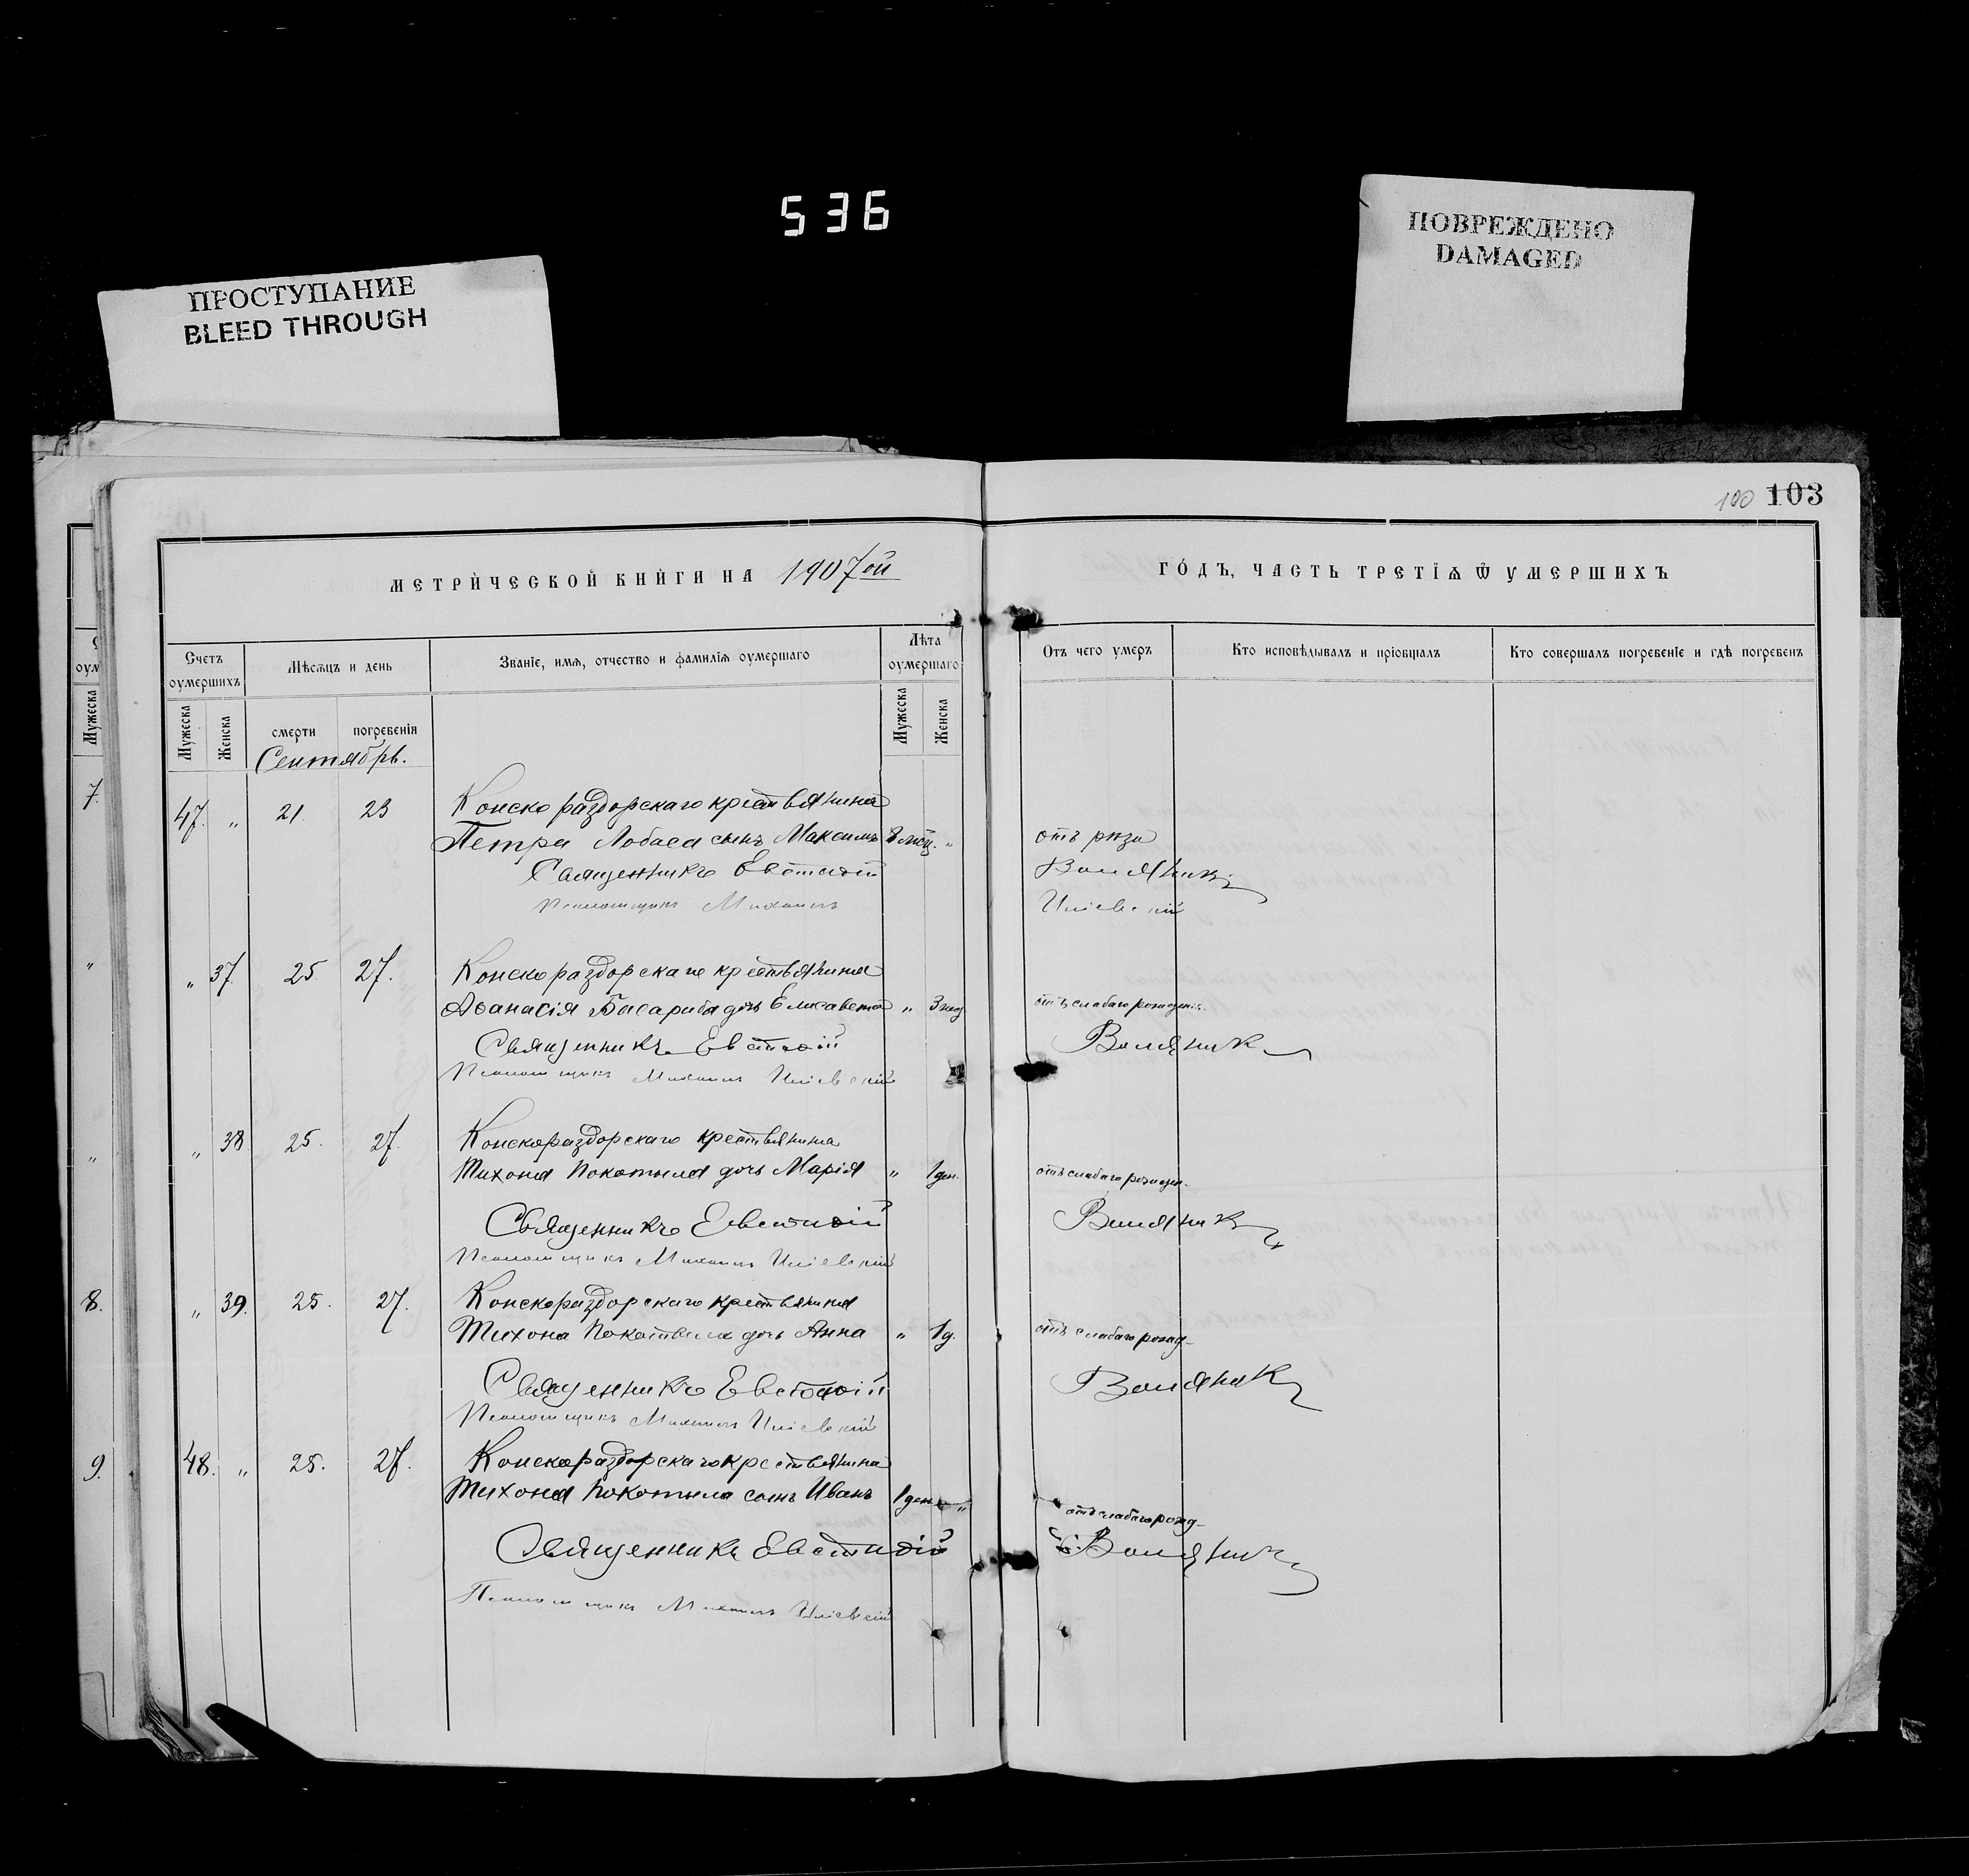 536
ПОВРЕЖДЕНО
DAMAGED
ПРОСТУПАНИЕ
BLEED THROUGH
100 103
МЕТРИЧЕСКОЙ КНИГИ НА 1907ой
ГОДЪ, ЧАСТЬ ТРЕТІѦ Ѿ УМЕРШИХЪ
Счетъ оумершихъ
Мѣсяцъ и день
Званіе, имя, отчество и фамилія оумершаго
Лѣта оумершаго
Отъ чего умеръ
Кто исповѣдывалъ и пріобщалъ
Кто совершалъ погребеніе и гдѣ погребенъ
Мужеска
Женска
смерти
погребенія
Мужеска
Женска
Мужеска
Сентябрь.
7.
47. " 21. 23 Конскораздорскаго крестьянина
Петра Лобаса сынъ Максимъ 8 мѣс. "
Священникъ Евстафій
Псаломщикъ Михаилъ
" 37 25 27. Конскораздорскаго крестьянина
Аѳанасія Басариба дочь Елисавета " 3 нед. отъ слабаго рожденія.
Священникъ Евстафій
Псаломщикъ Михаилъ
" 38 25. 27. Конскораздорскаго крестьянина
Тихона Покотыла дочь Марія " 1 ден. отъ слабаго рожден.
Священникъ Евстафій
Псаломщикъ Михаилъ
8.
" 39. 25. 27. Конскораздорскаго крестьянина
Тихона Покотыла дочь Анна " 1 д. отъ слабаго рожд.
Священникъ Евстафій
Псаломщикъ Михаилъ
9.
48. " 25. 27. Конскораздорскаго крестьянина
Тихона Покотыла сынъ Иванъ 1 день " отъ слабаго рожд.
Священникъ Евстафій
Псаломщикъ Михаилъ